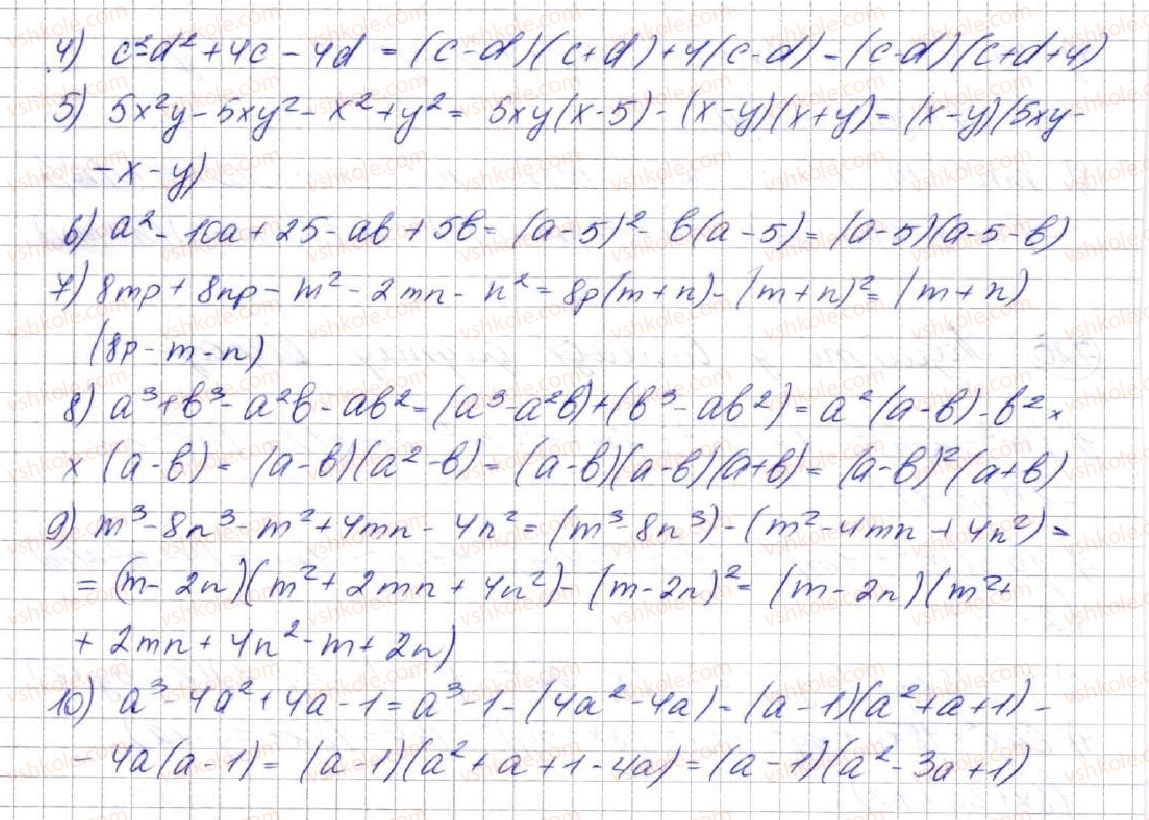 4) c²-d² + 4c - 4d = (c-d)(c+d)+4(c-d) = (c-d)(c+d+4)
5) 5x²y - 5xy² - x² + y² = 5xy(x-5) - (x-y)(x+y) = (x-y)(5xy-
-x-y)
6) a² - 10a + 25 - ab + 5b = (a-5)² - b(a-5) = (a-5)(a-5-b)
7) 8mp + 8np - m² - 2mn - n² = 8p(m+n) - (m+n)² = (m+n)
(8p-m-n)
8) a³+b³-a²b-ab² = (a³-a²b)+(b³-ab²) = a²(a-b)-b²×
×(a-b) = (a-b)(a²-b) = (a-b)(a-b)(a+b) = (a-b)²(a+b)
9) m³-8n³-m²+4mn-4n² = (m³-8n³)-(m²-4mn+4n²) =
= (m-2n)(m²+2mn+4n²)-(m-2n)² = (m-2n)(m²+
+2mn+4n²-m+2n)
10) a³-4a²+4a-1 = a³-1-(4a²-4a) = (a-1)(a²+a+1)-
-4a(a-1) = (a-1)(a²+a+1-4a) = (a-1)(a²-3a+1)
vshkole.com